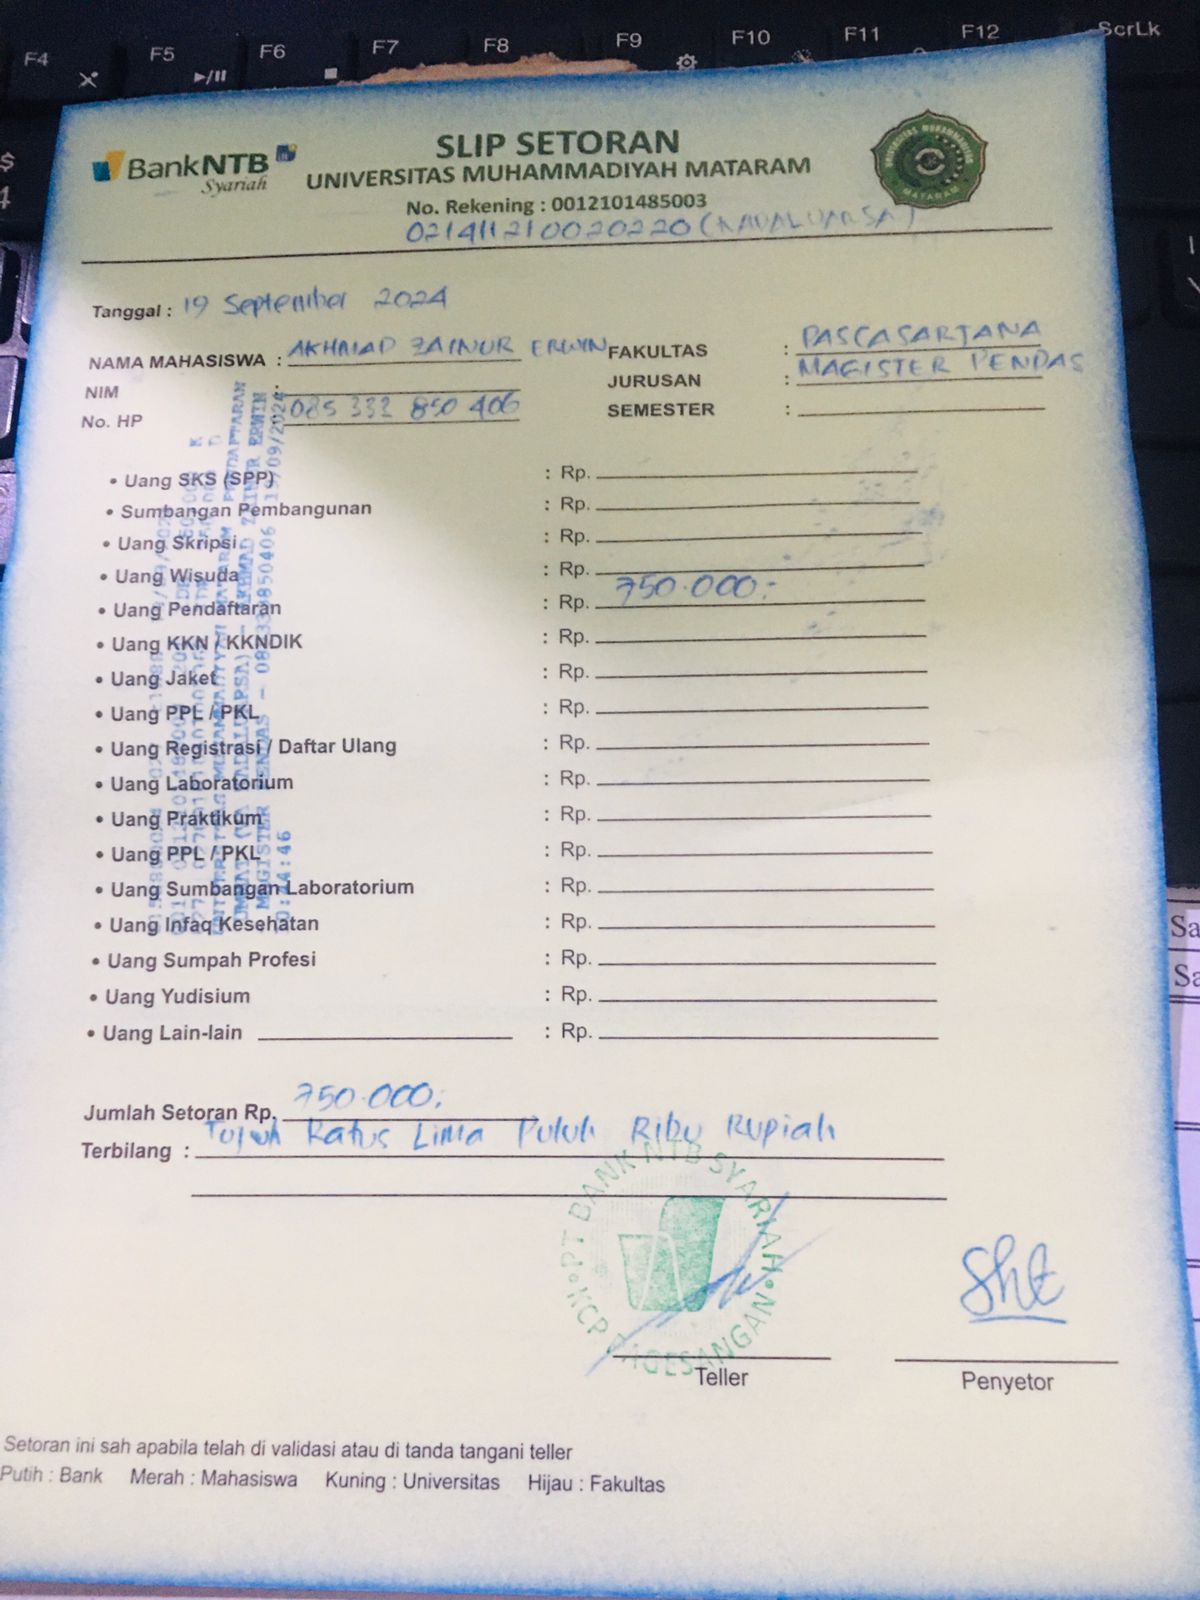 F4 F5 F6 F7 F8 F9 F10 F11 F12 ScrLk
$
4
BankNTB
Syariah
SLIP SETORAN
UNIVERSITAS MUHAMMADIYAH MATARAM
No. Rekening : 0012101485003
021411210020220 (KADALUARSA)
UNIVERSITAS MUHAMMADIYAH
MATARAM
Tanggal : 19 September 2024
NAMA MAHASISWA : AKHMAD ZAINUR ERWIN FAKULTAS : PASCASARJANA
NIM : JURUSAN : MAGISTER PENDAS
No. HP : 085 332 850 406 SEMESTER :
• Uang SKS (SPP) : Rp.
• Sumbangan Pembangunan : Rp.
• Uang Skripsi : Rp.
• Uang Wisuda : Rp.
• Uang Pendaftaran : Rp. 750.000:-
• Uang KKN / KKNDIK : Rp.
• Uang Jaket : Rp.
• Uang PPL / PKL : Rp.
• Uang Registrasi / Daftar Ulang : Rp.
• Uang Laboratorium : Rp.
• Uang Praktikum : Rp.
• Uang PPL / PKL : Rp.
• Uang Sumbangan Laboratorium : Rp.
• Uang Infaq Kesehatan : Rp.
• Uang Sumpah Profesi : Rp.
• Uang Yudisium : Rp.
• Uang Lain-lain : Rp.
UNIVERSITAS MUHAMMADIYAH MATARAM PENDAFTARAN
AKHMAD ZAINUR ERWIN
MAGISTER PENDAS - 085332850406 19/09/2024
Jumlah Setoran Rp. 750.000;
Terbilang : Tujuh Ratus Lima Puluh Ribu Rupiah
PT BANK NTB SYARIAH
KCP PAGESANGAN
Teller Penyetor
Setoran ini sah apabila telah di validasi atau di tanda tangani teller
Putih : Bank Merah : Mahasiswa Kuning : Universitas Hijau : Fakultas
Sa
Sa